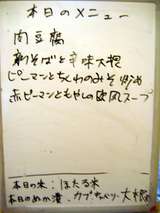 本日のメニュー
肉豆腐
刺そばと辛味大根
ピーマンとちくわのみそ炒め
赤ピーマンともやしの欧風スープ
本日の米: ほたる米
本日のぬか漬 カブ、キャベツ、大根